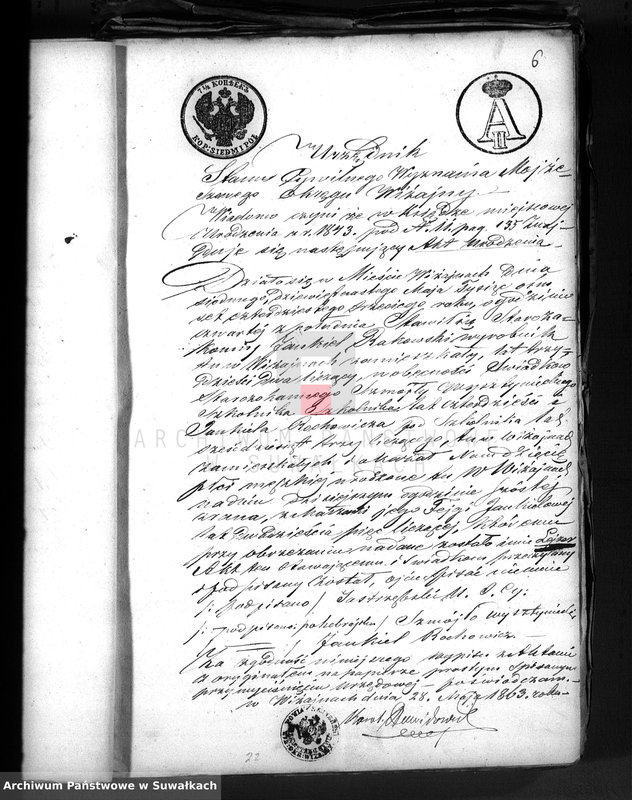 6
7½ КОПѢЕКЪ
KOP: SIEDM I PÓŁ
A II
Urzędnik
Stanu Cywilnego Wyznania Mojże-
szowego Okręgu Wiżajny
Wiadomo czyni że w księdze miejscowej
Urodzenia z r. 1843. pod N. 11. pag. 135 znaj-
duje się następujący Akt Urodzenia
Działo się w Mieście Wiżajnach dnia
siedmnastego Maja Tysiąc ośm-
set czterdziestego trzeciego roku, o godzinie
czwartej z południa Stawił się Staroza-
konny Jankiel Rakowski wyrobnik
tu w Wiżajnach zamieszkały, lat trzy-
dzieści dwa liczący, w obecności Świadków
Starozakonnego Szmójły Wysztynieckiego
Szkolnika lat czterdzieści i
Jankiela Rochowicza po Szkolnika lat
sześćdziesiąt trzy liczącego, tu w Wiżajnach
zamieszkałych i okazał Nam dziecię
płci męskiej urodzone tu w Wiżajnach
na dniu dzisiejszym o godzinie szóstej
z rana, z małżonki jego Fejgi Jankielowej
lat dwadzieścia pięć liczącej, któremu
przy obrzezaniu nadane zostało imie Lejzor
Akt ten stawającemu i świadkom przeczytany
i podpisany został, ojciec pisać nieumie
/: podpisano / Jastrzębski U. S. Cy:
/: podpisano po hebrajsku / Szmójło Wysztyniecki
/ Jankiel Rochowicz. —
Za zgodność niniejszego wypisu z Aktami
z oryginałem na papierze prostym spisanym
przy wyciśnięciu urzędowej poświadczam.
w Wiżajnach dnia 28. Maja 1863. roku
Dawidowicz
22
ARCHIWUM PAŃSTWOWE
SUWAŁKACH
Archiwum Państwowe w Suwałkach